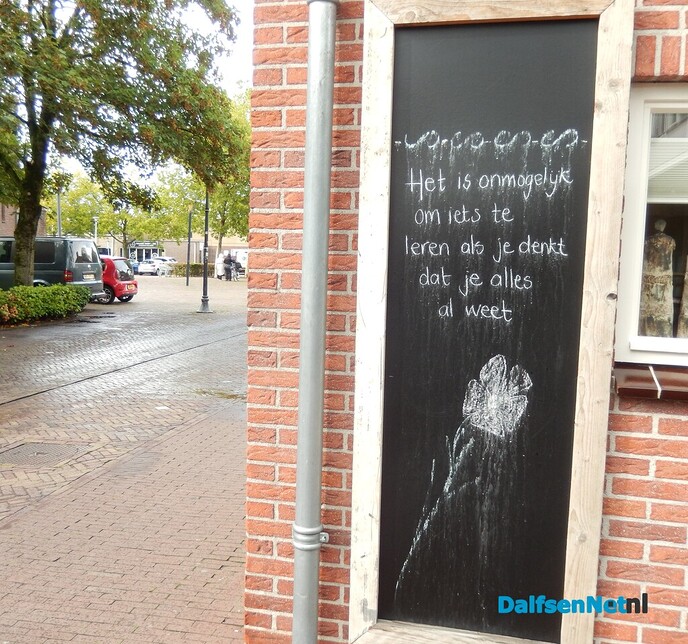 Het is onmogelijk
om iets te
leren als je denkt
dat je alles
al weet
DalfsenNet.nl